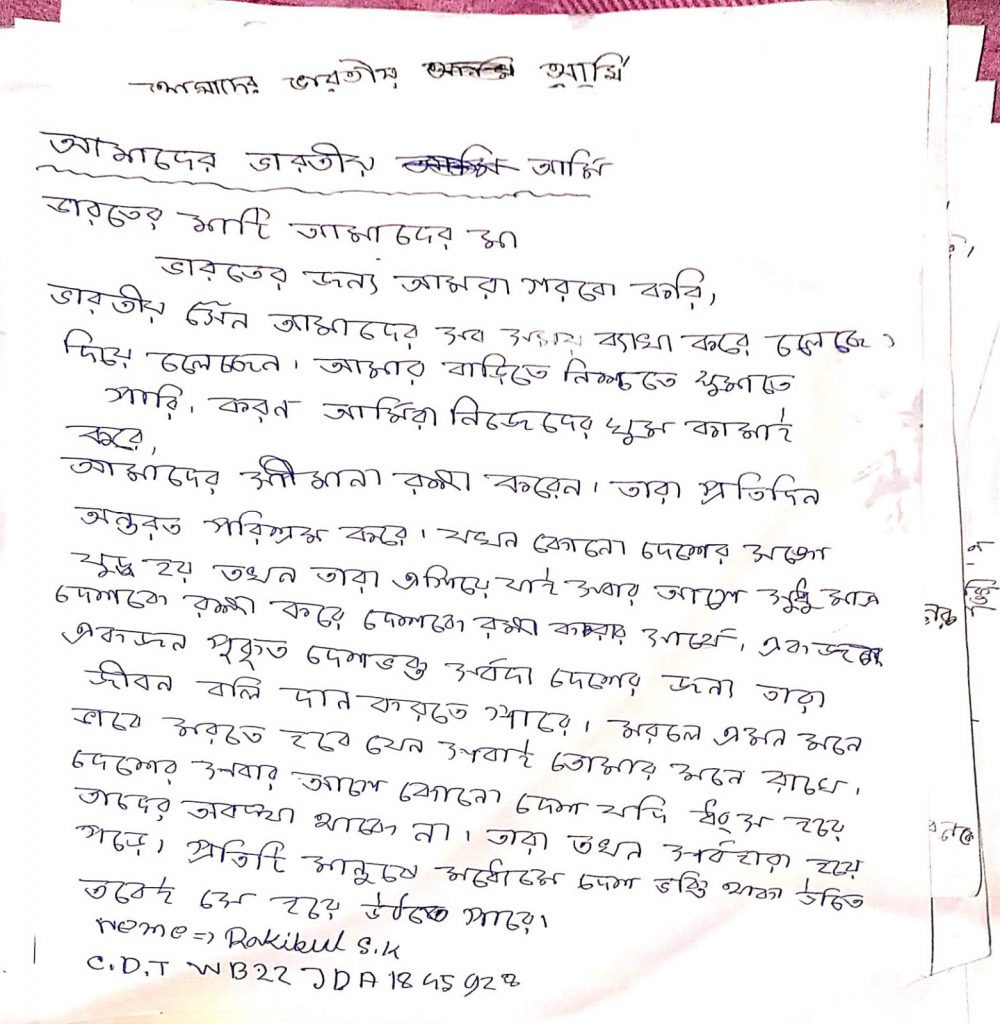 আমাদের ভারতীয় আর্মি
আমাদের ভারতীয় আর্মি
ভারতের মাটি আমাদের মা
ভারতের জন্য আমরা গরবো করি,
ভারতীয় সেনা আমাদের সব সময় ব্যাখা করে চলেছে।
দিয়ে চলেছেন। আমার বাড়িতে নিশ্চতে ঘুমাতে
পারি। করণ আর্মিরা নিজেদের ঘুম কামাই
করে,
আমাদের সীমানা রক্ষা করেন। তারা প্রতিদিন
অন্তরত পরিশ্রম করে। যখন কোনো দেশের সঙ্গে
যুদ্ধ হয় তখন তারা এগিয়ে যাই সবার আগে সুধু মাত্র
দেশকে রক্ষা করে দেশকে রক্ষা করার সার্থে। একজন
একজন পৃকৃত দেশভক্ত সর্বদা দেশের জন্য তারা
জীবন বলি দান করতে পারে। মরলে এমন মনে
ভাবে মরতে হবে যেন সবাই তোমার মনে রাখে।
দেশের সবার আগে কোনো দেশ যদি ধ্বংস হয়ে
তাদের অবস্থা থাকে না। তারা তখন সর্বহারা হয়ে
পড়ে। প্রতিটি মানুষে মধ্যেসে দেশ ভক্তি থাকা উচিত
তবেই সে হয়ে উঠতে পারে।
Neme => Rakibul S.K
C.D.T WB22JDA1845928